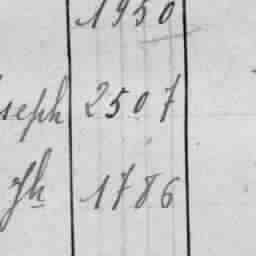 1950
seph 2507
Jh 1786